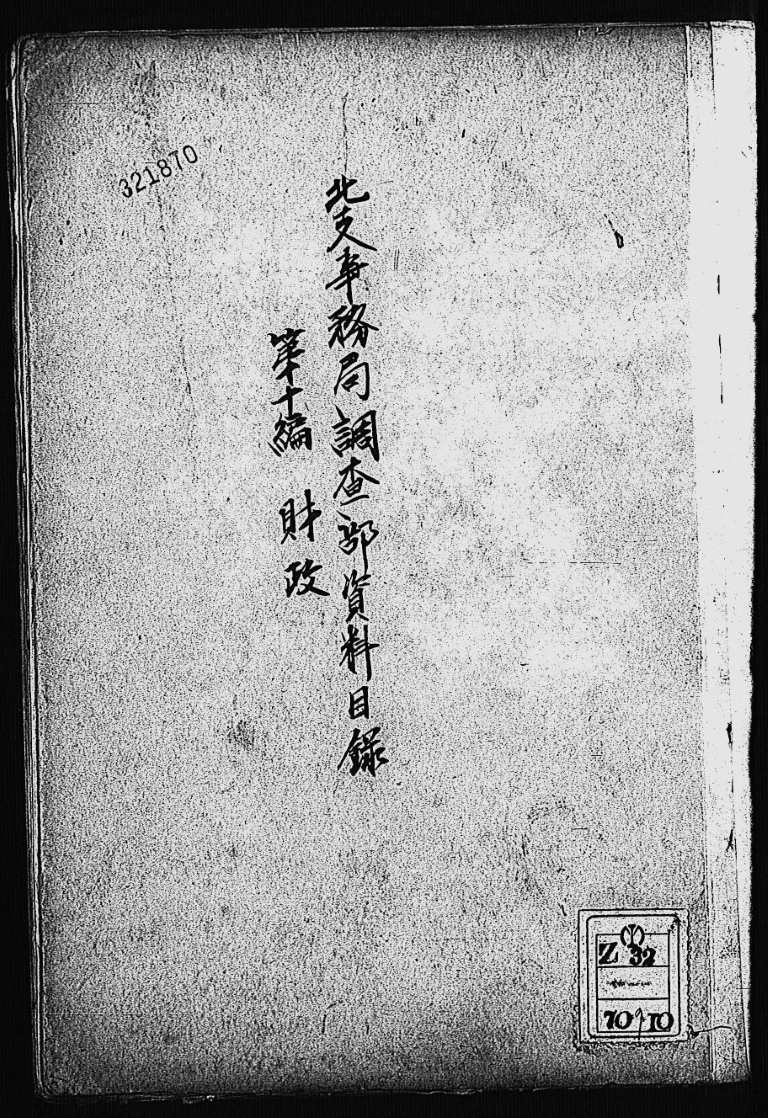 321870
北支事務局調查部資料目錄
第十編 財政
Z 32
10 9 10